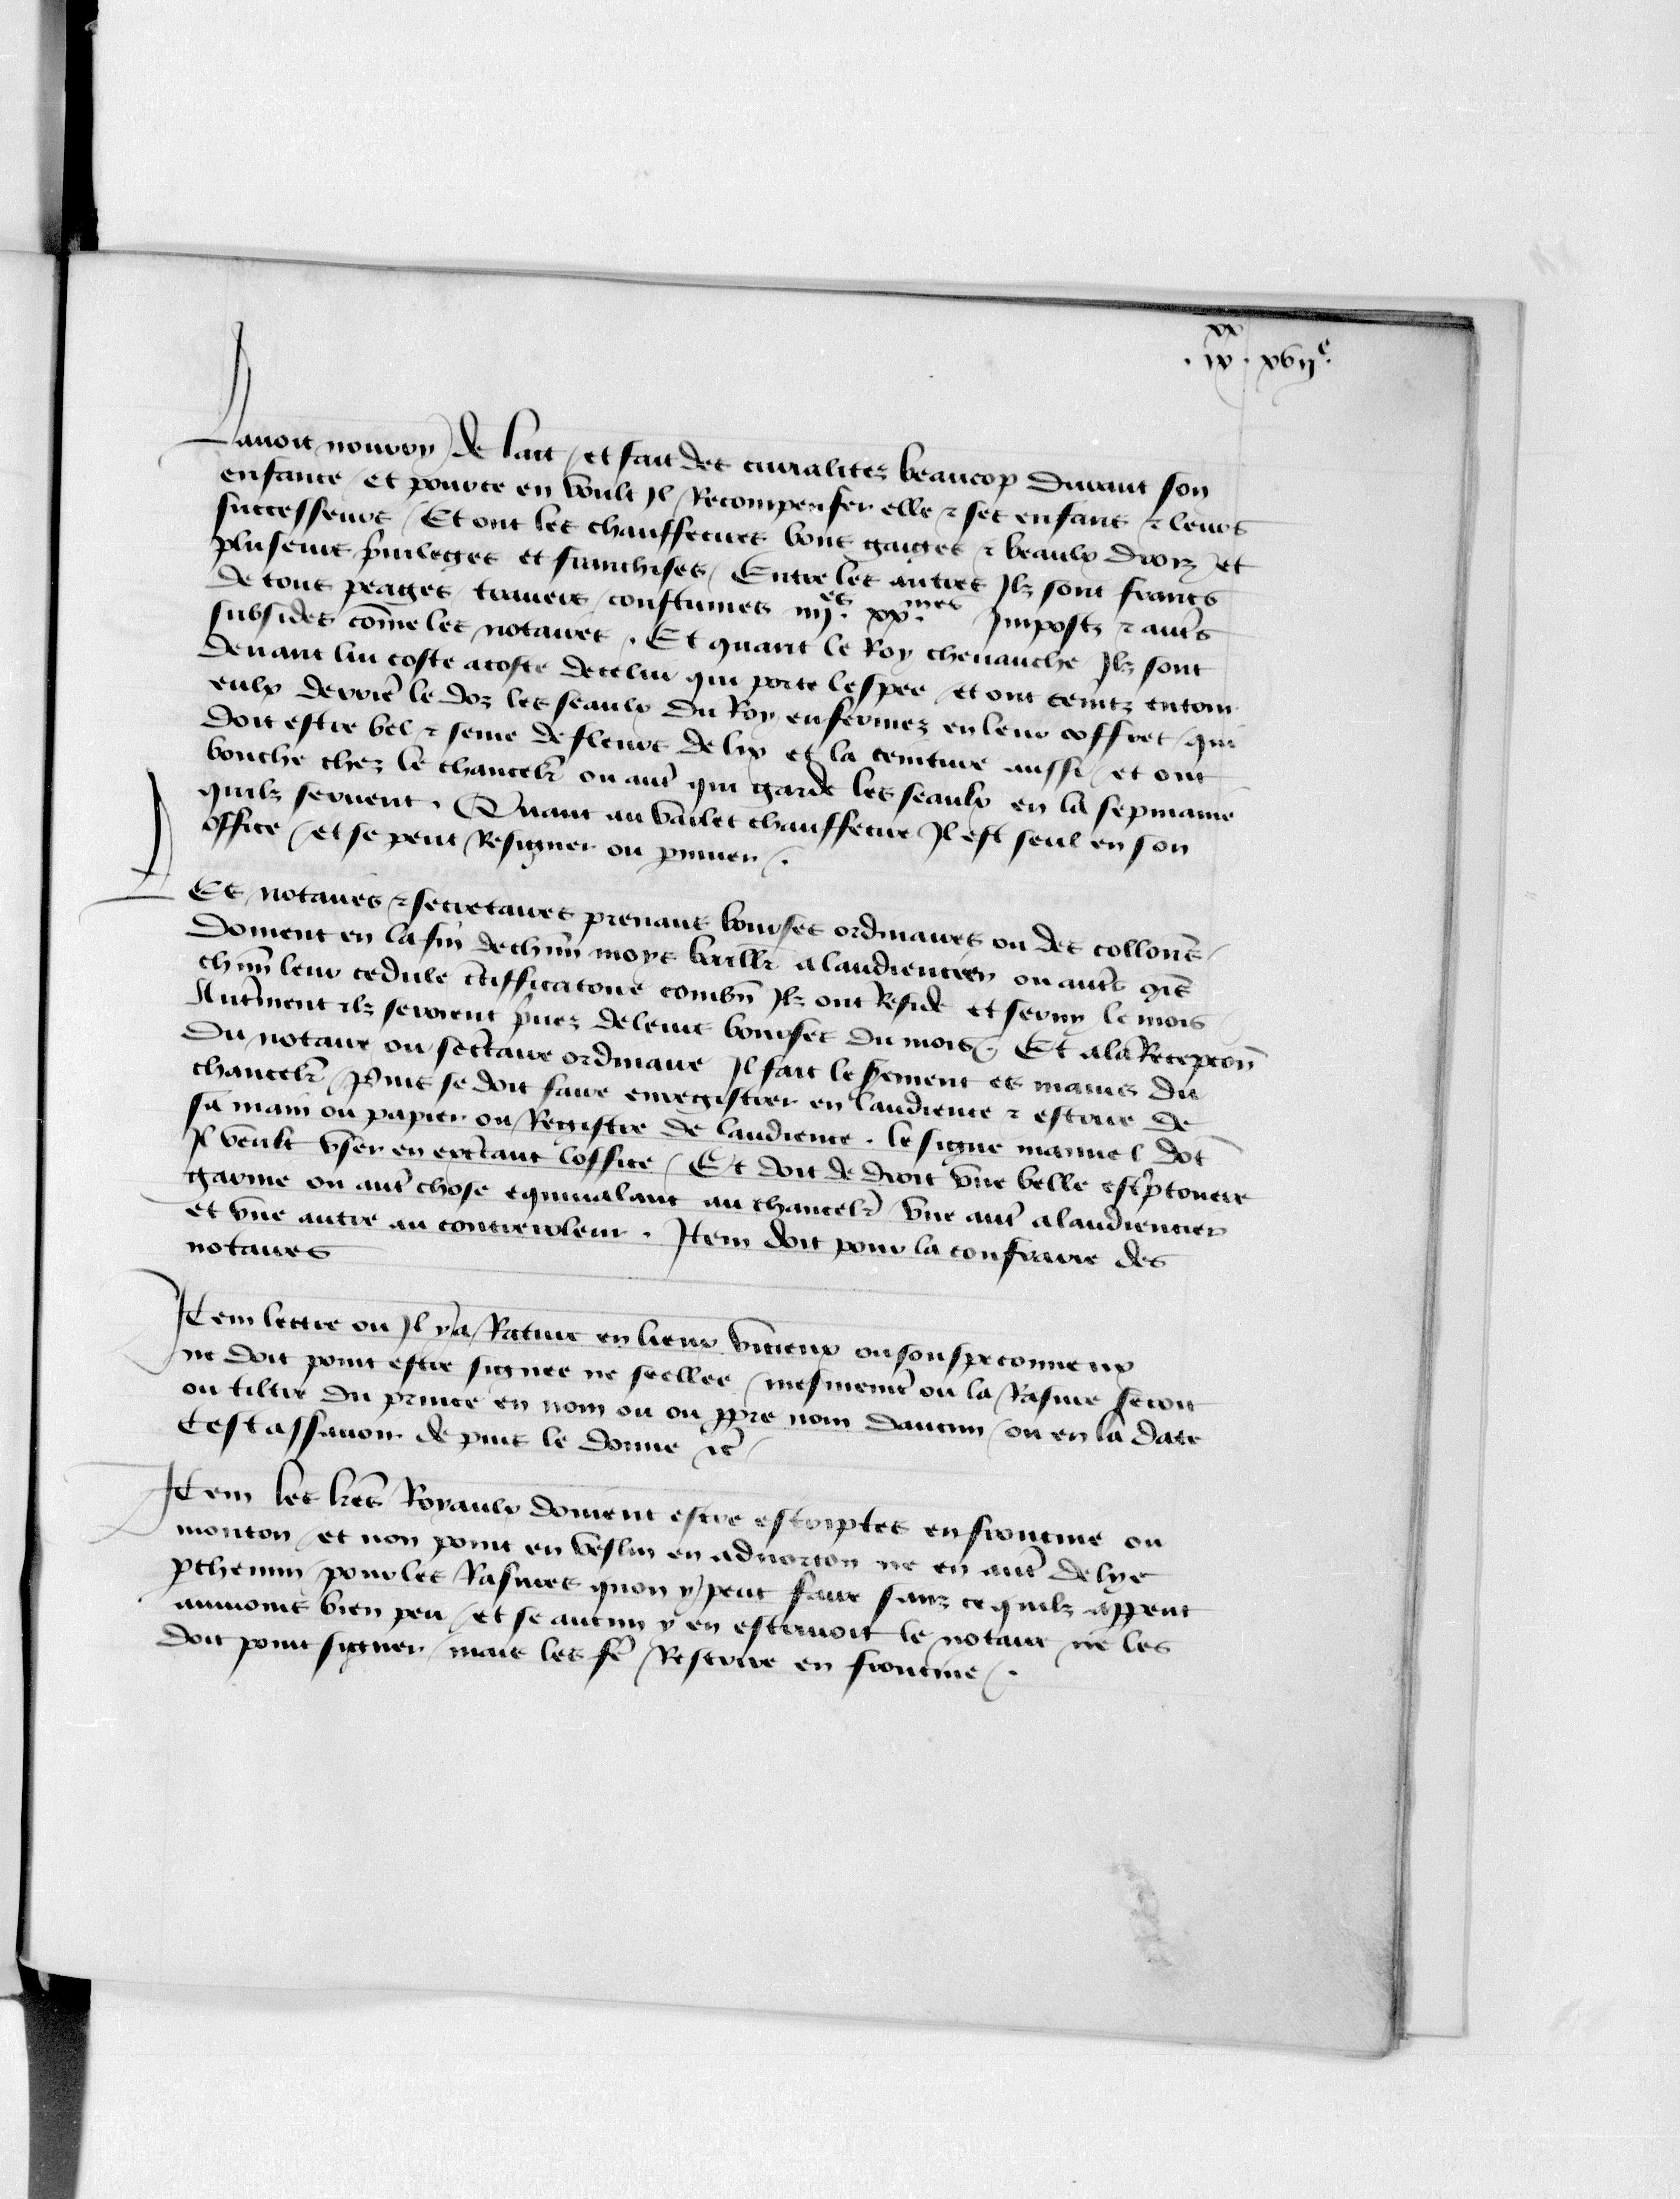 xx
. ix . xvii e.
Lavoit nourry de lait / et fait des curialitez beaucop durant son
enfance / et pource en voult Il Recompenser elle & ses enfans & leurs
successeurs / Et ont les chauffecires bons gaiges & beaulx droiz / et
pluseurs p̃uileges et franchises / Entre les autres Ilz sont francs
de tous peages / travers / coustumes iiij.es xx.mes Impostz & aut̃s
subsides cõme les notaires . Et quant le Roy chevauche Ilz sont
devant lui coste a coste de celui qui porte lespee / et ont ceintz entour
eulx derrier̃ le doz les seaulx du Roy enfermez en leur coffret / qui
doit estre bel & seme de fleurs de lix et la ceinture aussi / et ont
bouche chez le chancelr̃ ou aut̃ qui garde les seaulx en la sepmaine
quilz servent . Quant au varlet chauffecire Il est seul en son
office / et se peut Resigner ou p̃muer / .
Les notaires & secretaires prenans bourses ordinaires ou des collonẽ /
doivent en la fin de chũn moys baillr̃ a laudiencier ou aut̃s mẽ
chũn leur cedule c̃tifficatoire combñ Ilz ont Reside et servy le mois /
Aut̃ment Ilz seroient p̃vez de leurs bourses du mois . Et a la Recepcoñ
du notaire ou sec̃taire ordinaire Il fait le s̃ement es mains du
chancelr̃ / Puis se doit faire enregistrer en laudience & escrire de
sa main ou papier ou Registre de laudience . le signe manuel dot̃
Il veult user en exc̃ant loffice / Et doit de droit une belle esc̃ptouere
garnie ou aut̃ chose equivalant au chancelr̃ / une aut̃ a laudiencier
et une autre au contreroleur . Item doit pour la confrarie des
notaires
Item lettre ou Il y a Rature en lieux vicieux ou souspeconneux
ne doit point estre signee ne seellee / mesmemẽt ou la Rasure seroit
ou tiltre du prince en nom ou ou ppre nom daucun / ou en la date
Cest assavoir depuis le donne &c̃ /
Item les lr̃es Royaulx doivent estre escriptes en froncine ou
mouton / et non point en veslin en advorton ne en aut̃ delye
pchemin / pour les Rasures quon y peut faire sans ce quilz appent
aumoins bien peu / et se aucun y en escrivoit le notaire ne les
doit point signer / mais les fẽ Rescrire en froncine / .